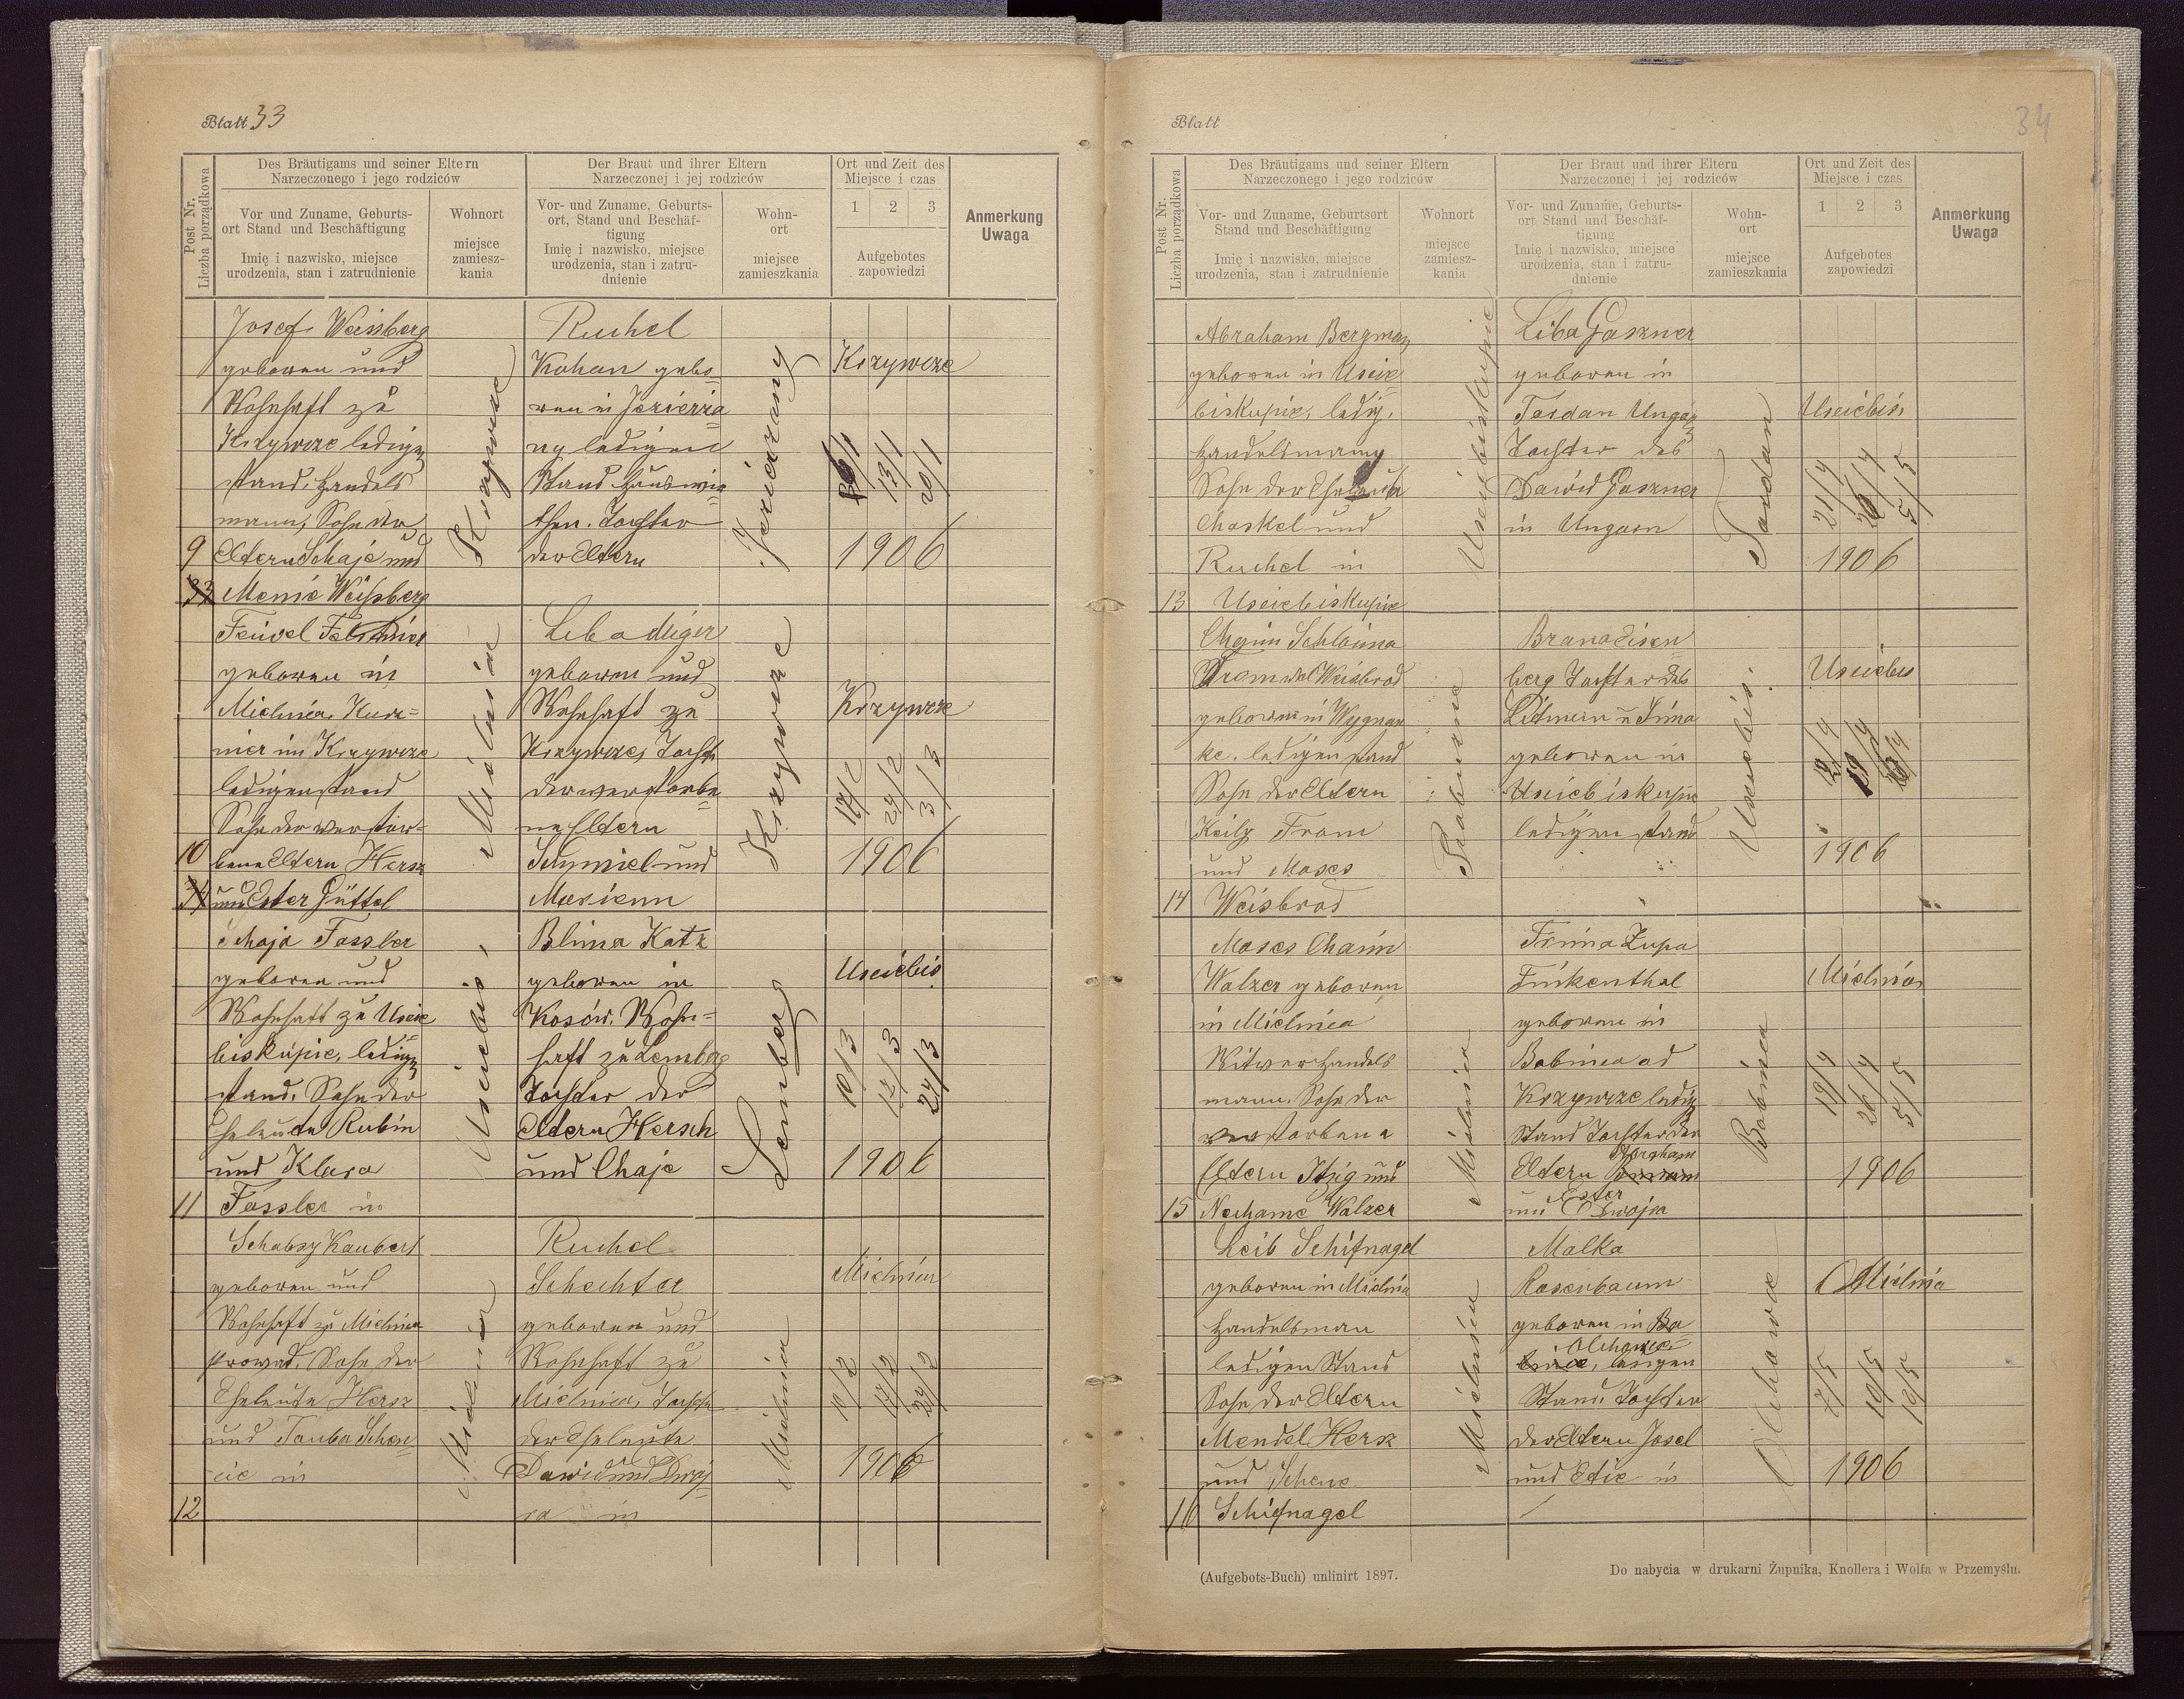 Blatt 33
Post Nr.
Liczba porządkowa
Des Bräutigams und seiner Eltern
Narzeczonego i jego rodziców
Der Braut und ihrer Eltern
Narzeczonej i jej rodziców
Ort und Zeit des
Miejsce i czas
Vor und Zuname, Geburts-
ort Stand und Beschäftigung
Imię i nazwisko, miejsce
urodzenia, stan i zatrudnienie
Wohnort
miejsce
zamiesz-
kania
Vor- und Zuname, Geburts-
ort, Stand und Beschäf-
tigung
Imię i nazwisko, miejsce
urodzenia, stan i zatru-
dnienie
Wohn-
ort
miejsce
zamieszkania
1 2 3
Aufgebotes
zapowiedzi
Anmerkung
Uwaga
9
Josef Weissberg
geboren und
Wohnhaft zu
Krzywcze ledigen
stand, Handels
mann, Sohn der
Eltern Schaje und
Menie Weissberg
Krzywcze
Ruchel
Kohan gebo=
ren in Jezierza=
ny ledigen
Stand
Tochter
der Eltern
Jezierzany
Krzywcze
6/1 13/1 20/1
1906
10
Feiwel
geboren in
Mielnica,
in Krzywcze
ledigen stand
Sohn der verstor=
bene Eltern Hersz
und Ester Güttel
Mielnica
Liba
geboren und
Wohnhaft zu
Krzywcze, Tocht
der verstorbe=
ne Eltern
Schmiel und
Krzywcze
Krzywcze
17/2 24/2 3/3
1906
11
Schaja Fassler
geboren und
Wohnhaft zu Uscie
biskupie, ledigen
stand, Sohn der
Eheleute Rubin
und Klara
Fassler in
Usciebis,
Blima Katz
geboren in
Kosów, Wohn=
haft zu Lemberg
Tochter der
Eltern Hersch
und Chaje
Lemberg
Usciebis
10/3 17/3 24/3
1906
12
Schabsy Kaubert
geboren und
Wohnhaft zu Mielnica
Sohn der
Eheleute Hersz
und Tauba
in
Mielnica
Ruchel
Schechter
geboren und
Wohnhaft zu
Mielnica, Tocht
der Eheleute
Dawid und
in
Mielnica
Mielnica
10/2 17/2 24/2
1906
Blatt 34
Post Nr.
Liczba porządkowa
Des Bräutigams und seiner Eltern
Narzeczonego i jego rodziców
Der Braut und ihrer Eltern
Narzeczonej i jej rodziców
Ort und Zeit des
Miejsce i czas
Vor- und Zuname, Geburtsort
Stand und Beschäftigung
Imię i nazwisko, miejsce
urodzenia, stan i zatrudnienie
Wohnort
miejsce
zamiesz-
kania
Vor- und Zuname, Geburts-
ort Stand und Beschäf-
tigung
Imię i nazwisko, miejsce
urodzenia, stan i zatru-
dnienie
Wohn-
ort
miejsce
zamieszkania
1 2 3
Aufgebotes
zapowiedzi
Anmerkung
Uwaga
13
Abraham Bergman
geboren in Uscie
biskupie, ledig,
Handelsmann
Sohn der Eheleute
Chaskel und
Ruchel in
Usciebiskupie
Usciebiskupie
Liba Gaszner
geboren in
Tordan Ungarn
Tochter des
Dawid Gaszner
in Ungarn
Tordan
Usciebis
21/4 26/4 5/5
1906
14
Chaim Schloima
Weisbrod
geboren in Wygnan
ke, ledigen stand
Sohn der Eltern
From
und Moses
Weisbrod
Brana Eisen
berg Tochter des
geboren in
Usciebiskupie
ledigen stand
Usciebis
Usciebis
12/4 19/4
1906
15
Moses Chaim
Walzer geboren
in Mielnica
Witwer Handels
mann, Sohn der
verstorbene
Eltern Itzig und
Nechame Walzer
Mielnica
Frima Zupa
Finkenthal
geboren in
Babince ad
Krzywcze ledig
Stand Tochter der
Eltern Abraham
und Ester
Babince
Mielnica
19/4 26/4 5/5
1906
16
Leib Schifnagel
geboren in Mielnica
Handelsman
ledigen Stand
Sohn der Eltern
Mendel Hersz
und Schene
Schifnagel
Mielnica
Malka
Rosenbaum
geboren in
Olchowce
ledigen
Stand, Tochter
der Eltern Josel
und Etie in
Olchowce
Mielnica
7/5 10/5 19/5
1906
(Aufgebots-Buch) unlinirt 1897.
Do nabycia w drukarni Żupnika, Knollera i Wolfa w Przemyślu.